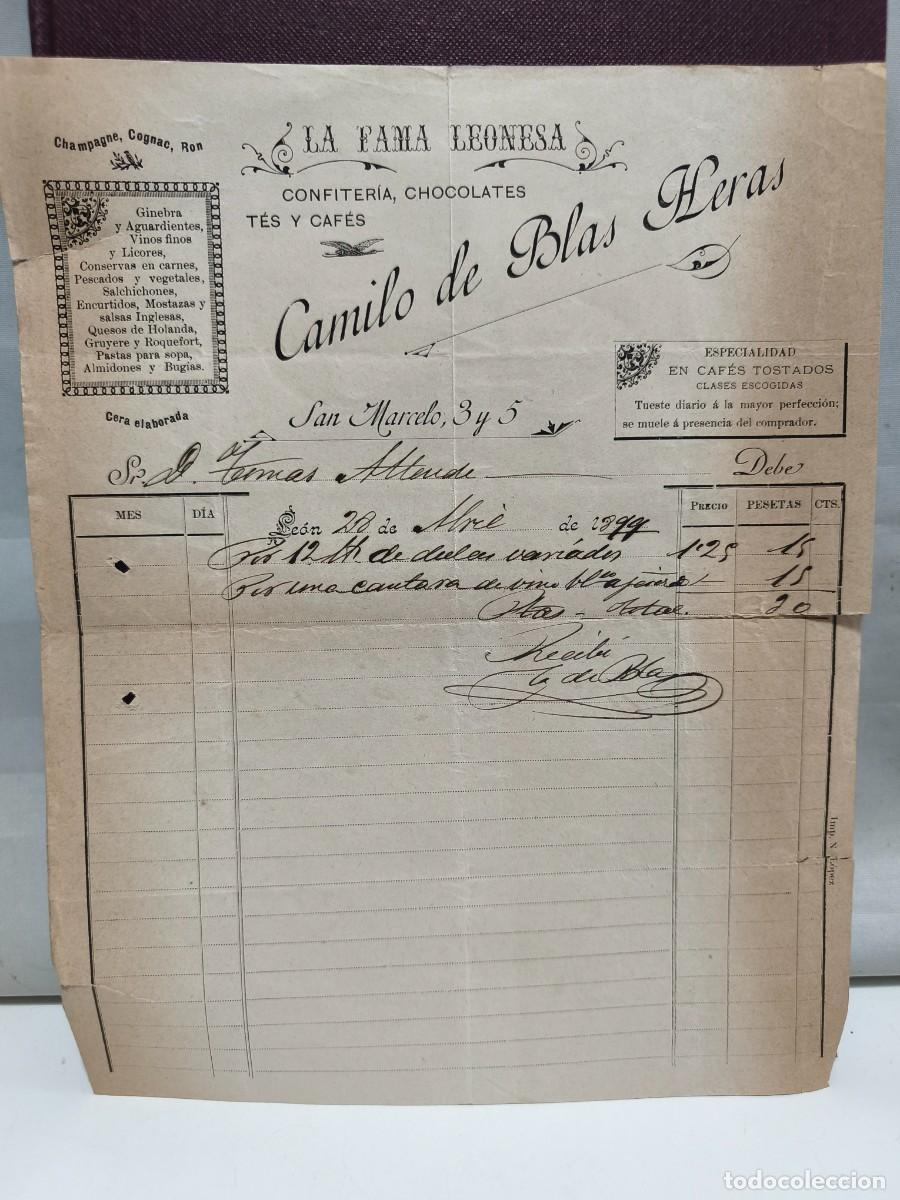 Champagne, Cognac, Ron
Ginebra
y Aguardientes,
Vinos finos
y Licores,
Conservas en carnes,
Pescados y vegetales,
Salchichones,
Encurtidos, Mostazas y
salsas Inglesas,
Quesos de Holanda,
Gruyere y Roquefort,
Pastas para sopa,
Almidones y Bugías.
Cera elaborada
LA FAMA LEONESA
CONFITERÍA, CHOCOLATES
TÉS Y CAFÉS
Camilo de Blas Heras
ESPECIALIDAD
EN CAFÉS TOSTADOS
CLASES ESCOGIDAS
Tueste diario á la mayor perfección;
se muele á presencia del comprador.
San Marcelo, 3 y 5
Sr. D. Tomas Allende Debe
MES DÍA PRECIO PESETAS CTS.
León 28 de Abril de 1899
Por 12 de variados 1'25 15
Por una cantara de vino 15
total 20
Recibí
C de Blas
Imp. N. López
todocoleccion